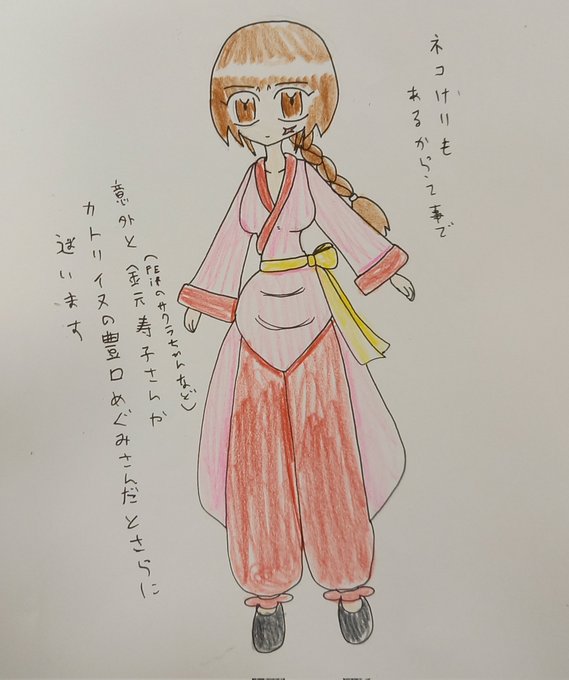 ネコけりも
あるからて事で
のサクラちゃんなど)
意外と金元寿子さんか
カトリイヌの豊口めぐみさんだとさらに
迷います